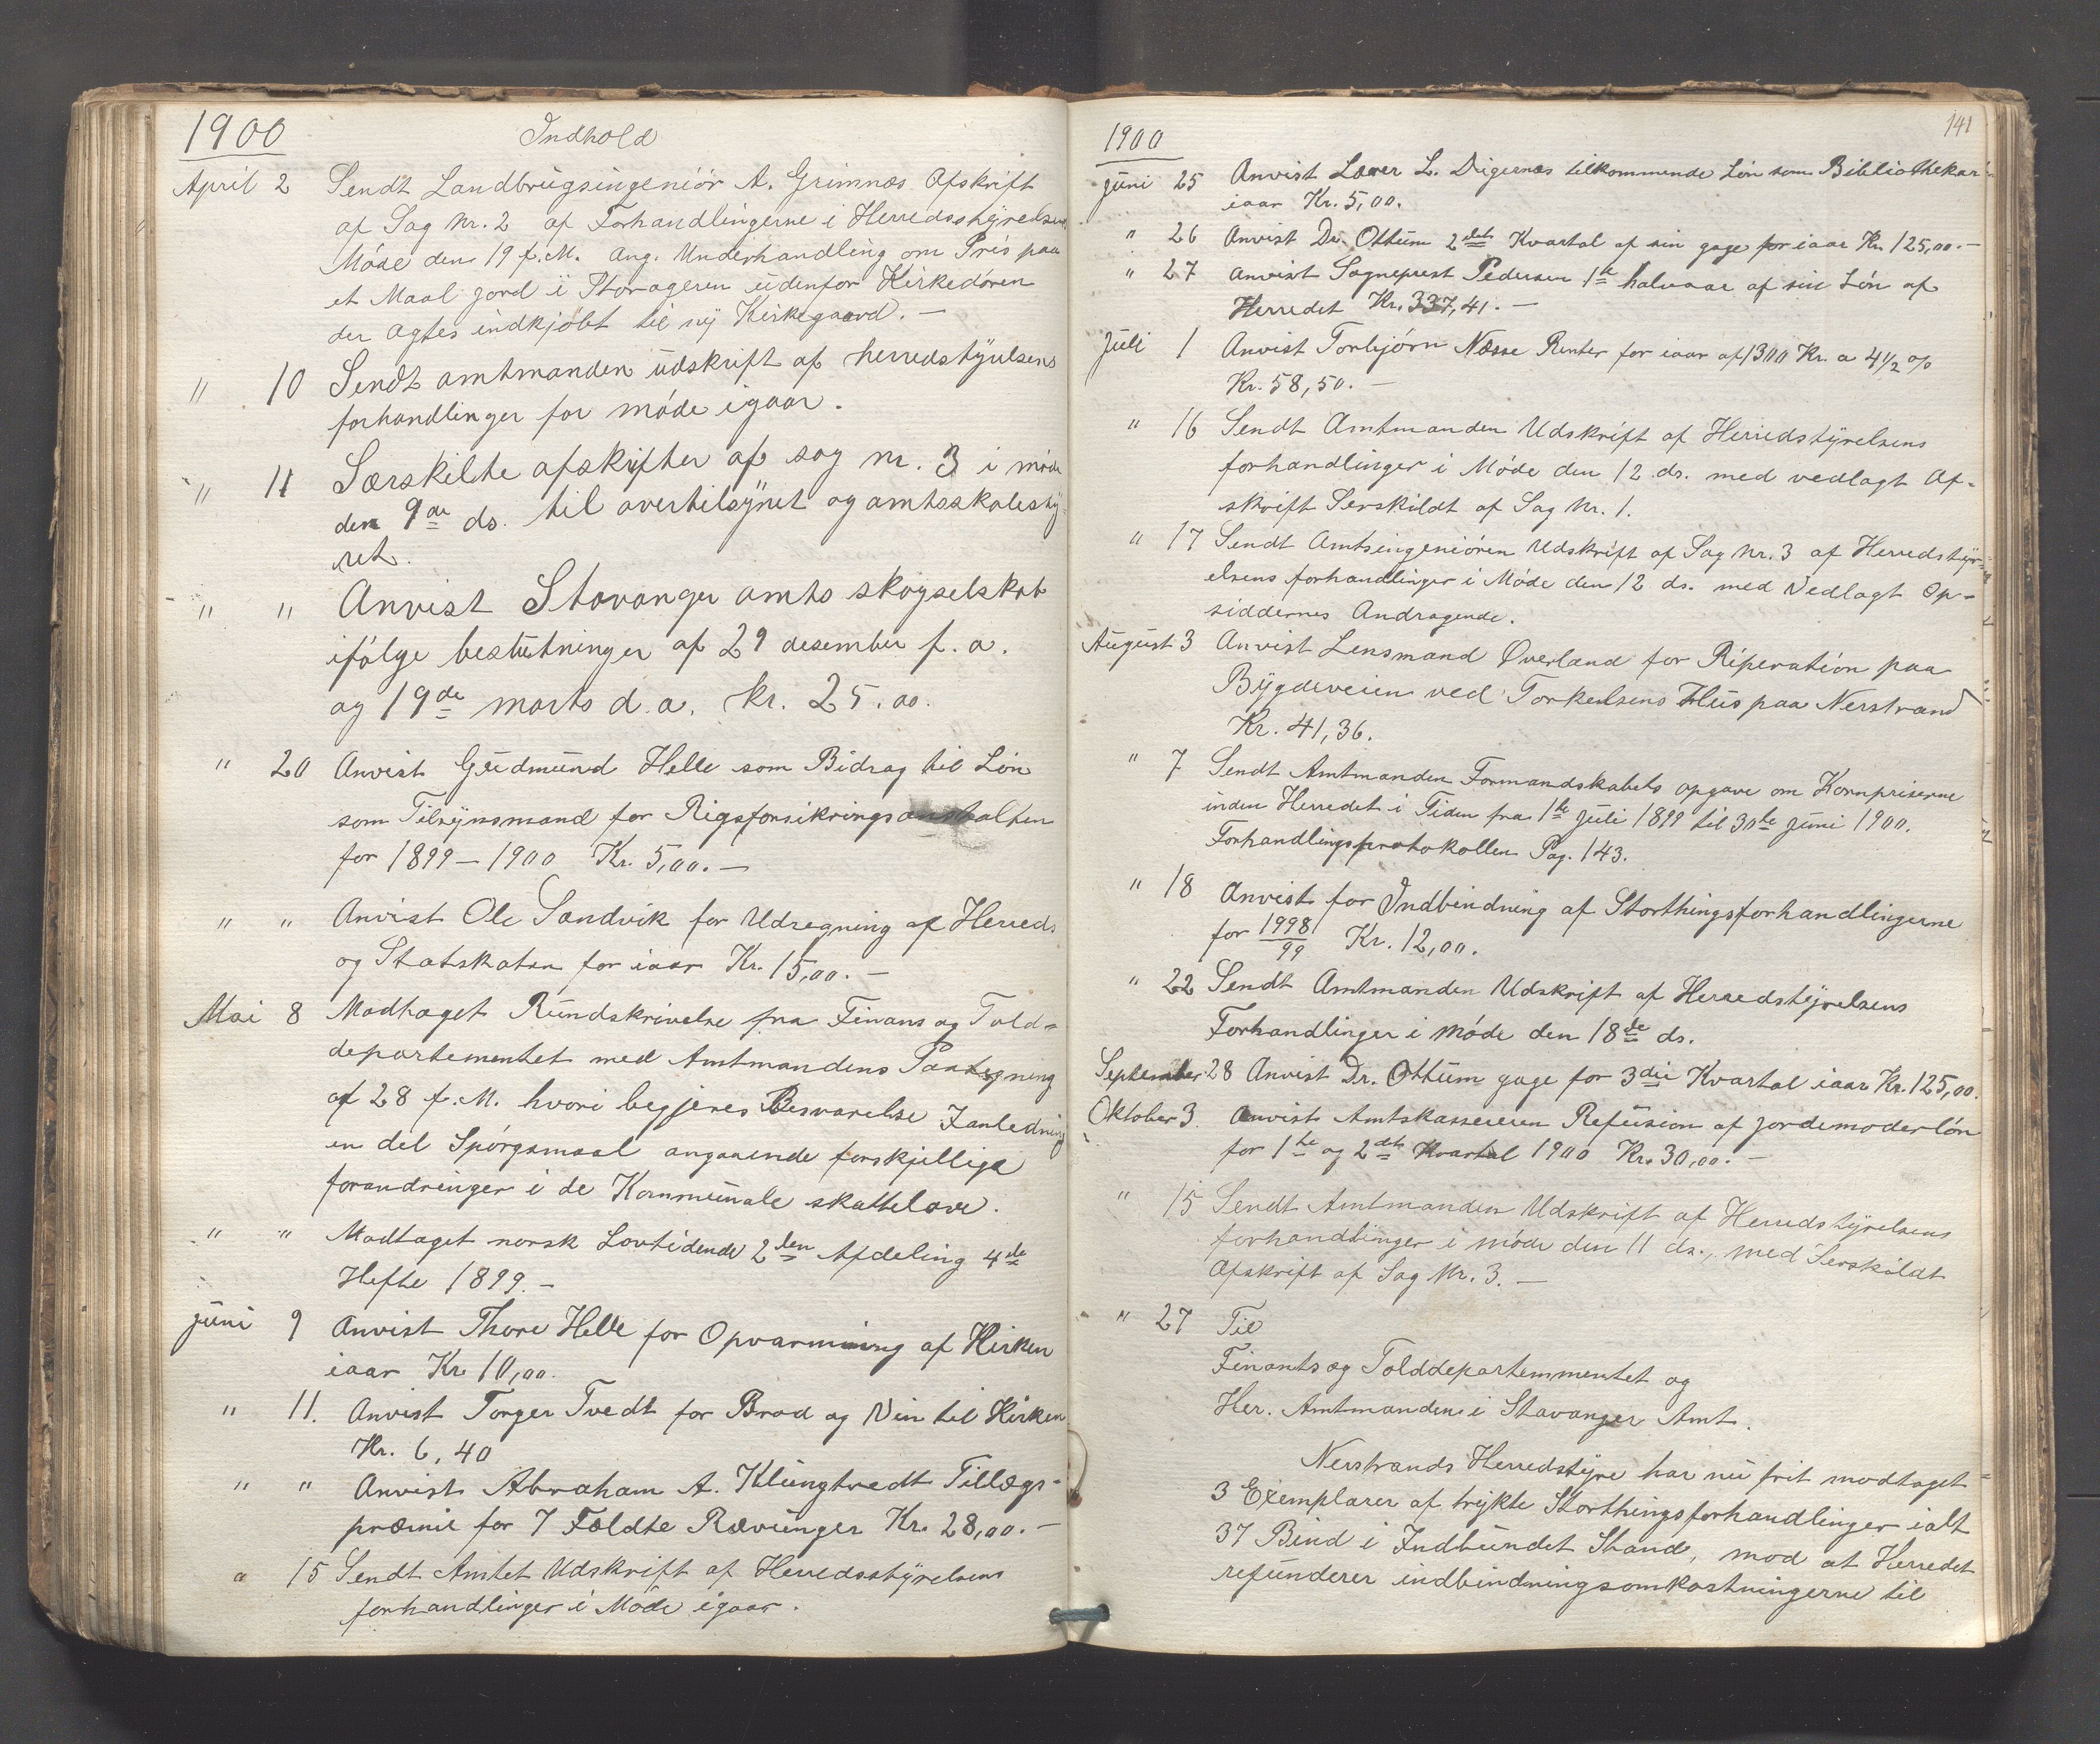 1900 Indhold
April 2 Sendt Landbrugsingeniör A. Grimnæs Afskrift
af Sag Nr. 2 af Forhandlingerne i Herredsstyrelsens
Möde den 19 f. M. ang. Underhandling om Pris paa
et Maal jord i Storageren udenfor Kirkedören
der agtes indkjöbt til ny Kirkegaard. —
" 10 Sendt amtmanden udskrift af herredstyrelsens
forhandlinger for möde igaar.
" 11 Særskilte afskrifter af sag nr. 3 i möde
den 9de ds. til overtilsynet og amtsskolesty-
ret.
" " Anvist Stavanger amts skogselskab
ifölge beslutninger af 29 desember f. a.
og 19de marts d. a. kr. 25.00.
" 20 Anvist Gudmund Helle som Bidrag til Lön
som Tilsynsmand for Rigsforsikringsanstalten
for 1899–1900 Kr. 5,00. —
" " Anvist Ole Sandvik for Udregning af Herreds
og Statskatten for iaar Kr. 15,00. —
Mai 8 Modtaget Rundskrivelse fra Finans og Told-
departementet med Amtmandens Paategning
af 28 f. M. hvori begjeres Besvarelse Ianledning
en del Spörgsmaal angaaende forskjellige
forandringer i de Kommunale skattelove.
" " Modtaget norsk Lovtidende 2den Afdeling 4de
Hefte 1899. —
juni 9 Anvist Thore Helle for Opvarmning af Kirken
iaar Kr 10,00.
" 11. Anvist Torger Tvedt for Brød og Vin til Kirken
Kr. 6,40
" " Anvist Abraham A. Klungtvedt Tillægs-
præmie for 7 Fældte Rævunger Kr. 28,00. —
" 15 Sendt Amtet Udskrift af Herredsstyrelsens
forhandlinger i Möde igaar.
141
1900
juni 25 Anvist Lærer L. Digernæs tilkommende Lön som Bibliothekar
iaar Kr. 5,00.
" 26 Anvist Dr. Ottum 2det Kvartal af sin gage for iaar Kr. 125,00. —
" 27 Anvist Sogneprest Pedersen 1te halvaar af sin Lön af
Herredet Kr. 337,41. —
Juli 1 Anvist Torbjörn Næsse Renter for iaar af 1300 Kr. a 4 1/2 %
Kr. 58,50. —
" 16 Sendt Amtmanden Udskrift af Herredstyrelsens
forhandlinger i Möde den 12 ds. med vedlagt Af-
skrift Serskildt af Sag Nr. 1.
" 17 Sendt Amtsingeniören Udskrift af Sag Nr. 3 af Herredstyr-
elsens forhandlinger i Möde den 12 ds. med Vedlagt Op-
siddernes Andragende.
August 3 Anvist Lensmand Øverland for Riperation paa
Bygdeveien ved Torkelsens Hus paa Nerstrand
Kr. 41,36.
" 7 Sendt Amtmanden Formandskabets opgave om Kornpriserne
inden Herredet i Tiden fra 1te Juli 1899 til 30te juni 1900.
Forhandlingsprotokollen Pag. 143.
" 18 Anvist for Indbindning af Storthingsforhandlingerne
for 1998/99 Kr. 12,00.
" 22 Sendt Amtmanden Udskrift af Herredstyrelsens
Forhandlinger i Möde den 18de ds.
September 28 Anvist Dr. Ottum gage for 3die Kvartal iaar Kr. 125,00.
Oktober 3. Anvist Amtskassereren Refusion af jordemoderlön
for 1te og 2det Kvartal 1900 Kr. 30,00. —
" 15 Sendt Amtmanden Udskrift af Herredstyrelsens
forhandlinger i möde den 11 ds., med Serskildt
Afskrift af Sag Nr. 3. —
" 27 Til
Finants og Tolddepartemmentet og
Her. Amtmanden i Stavanger Amt.
Nerstrands Herredstyre har nu frit modtaget
3 Exemplarer af trykte Storthingsforhandlinger ialt
37 Bind i Indbundet Stand, mod at Herredet
refunderer indbindningsomkostningerne til